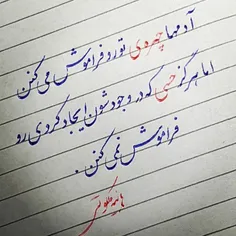 آدمها چهره‌ی تو رو فراموش می کنن
اما هرگز حسی که در وجودشون ایجاد کردی رو
فراموش نمی کنن .